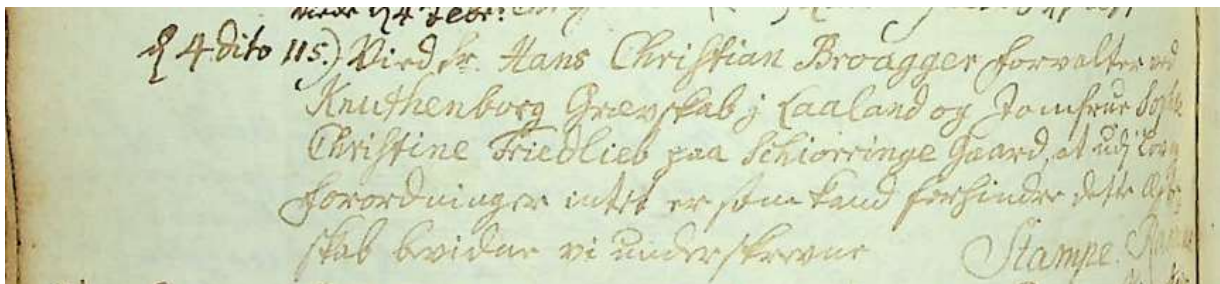 viede d 4 Febr:
d 4 dito 115.) Vied Hr. Hans Christian Broagger forvalter ved
Knuthenborg Grævskab j Laaland og Jomfrue Sophie
Christine Friedlieb paa Schiørringe Gaard, at udj Lov og
forordninger intet er som kand forhindre dette Ægte-
skab bevidne vi underskrevne Stampe.